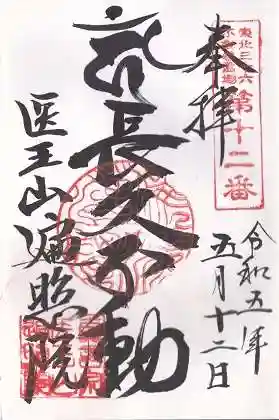 東北三十六
不動尊霊場
第十二番
奉拝
令和五年
五月十二日
長久不動
医王山遍照院